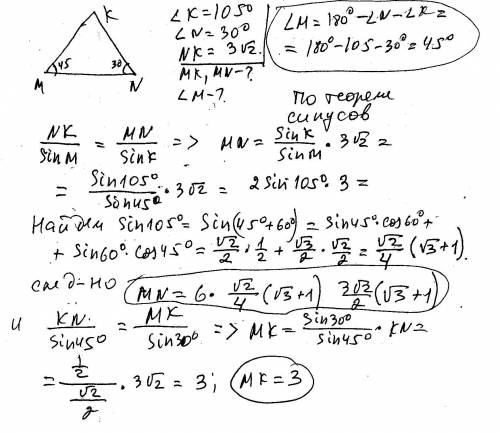 K
45
30
M
N
∠K=105°
∠N=30°
NK=3√2.
MK, MN-?
∠M-?
∠M=180°-∠N-∠K=
=180°-105-30°=45°
По теореме
синусов
NK/SinM = MN/SinK => MN= SinK/SinM · 3√2 =
= Sin105°/Sin45° · 3√2 = 2Sin105°·3=
Найдем Sin105°=Sin(45°+60°)=Sin45°·cos60°+
+ Sin60°·cos45°= √2/2 · 1/2 + √3/2 · √2/2 = √2/4 (√3+1).
след-но MN=6· √2/4 (√3+1) 3√2/2 (√3+1)
и KN/Sin45° = MK/Sin30° => MK= Sin30°/Sin45° · KN=
= 1/2 / √2/2 · 3√2 = 3; MK=3